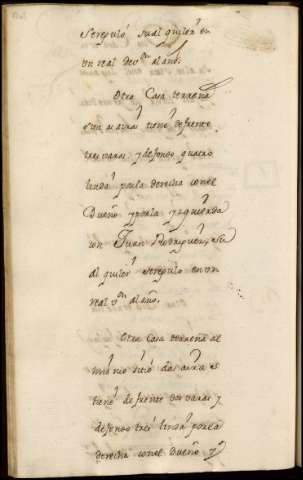 Se regulò su alquiler en
un real de v.on al año.
Otra Casa terrena
tiene de frente
tres varas y de fondo quatro
linda por la derecha con el
Dueño y por la yzquierda
con Juan Rodriguez, su
alquiler se regulo en un
real v.on al año.
Otra Casa terrena al
mismo sitio de arriva
tiene de frente dos varas y
de fondo tres linda por la
derecha con el Dueño y